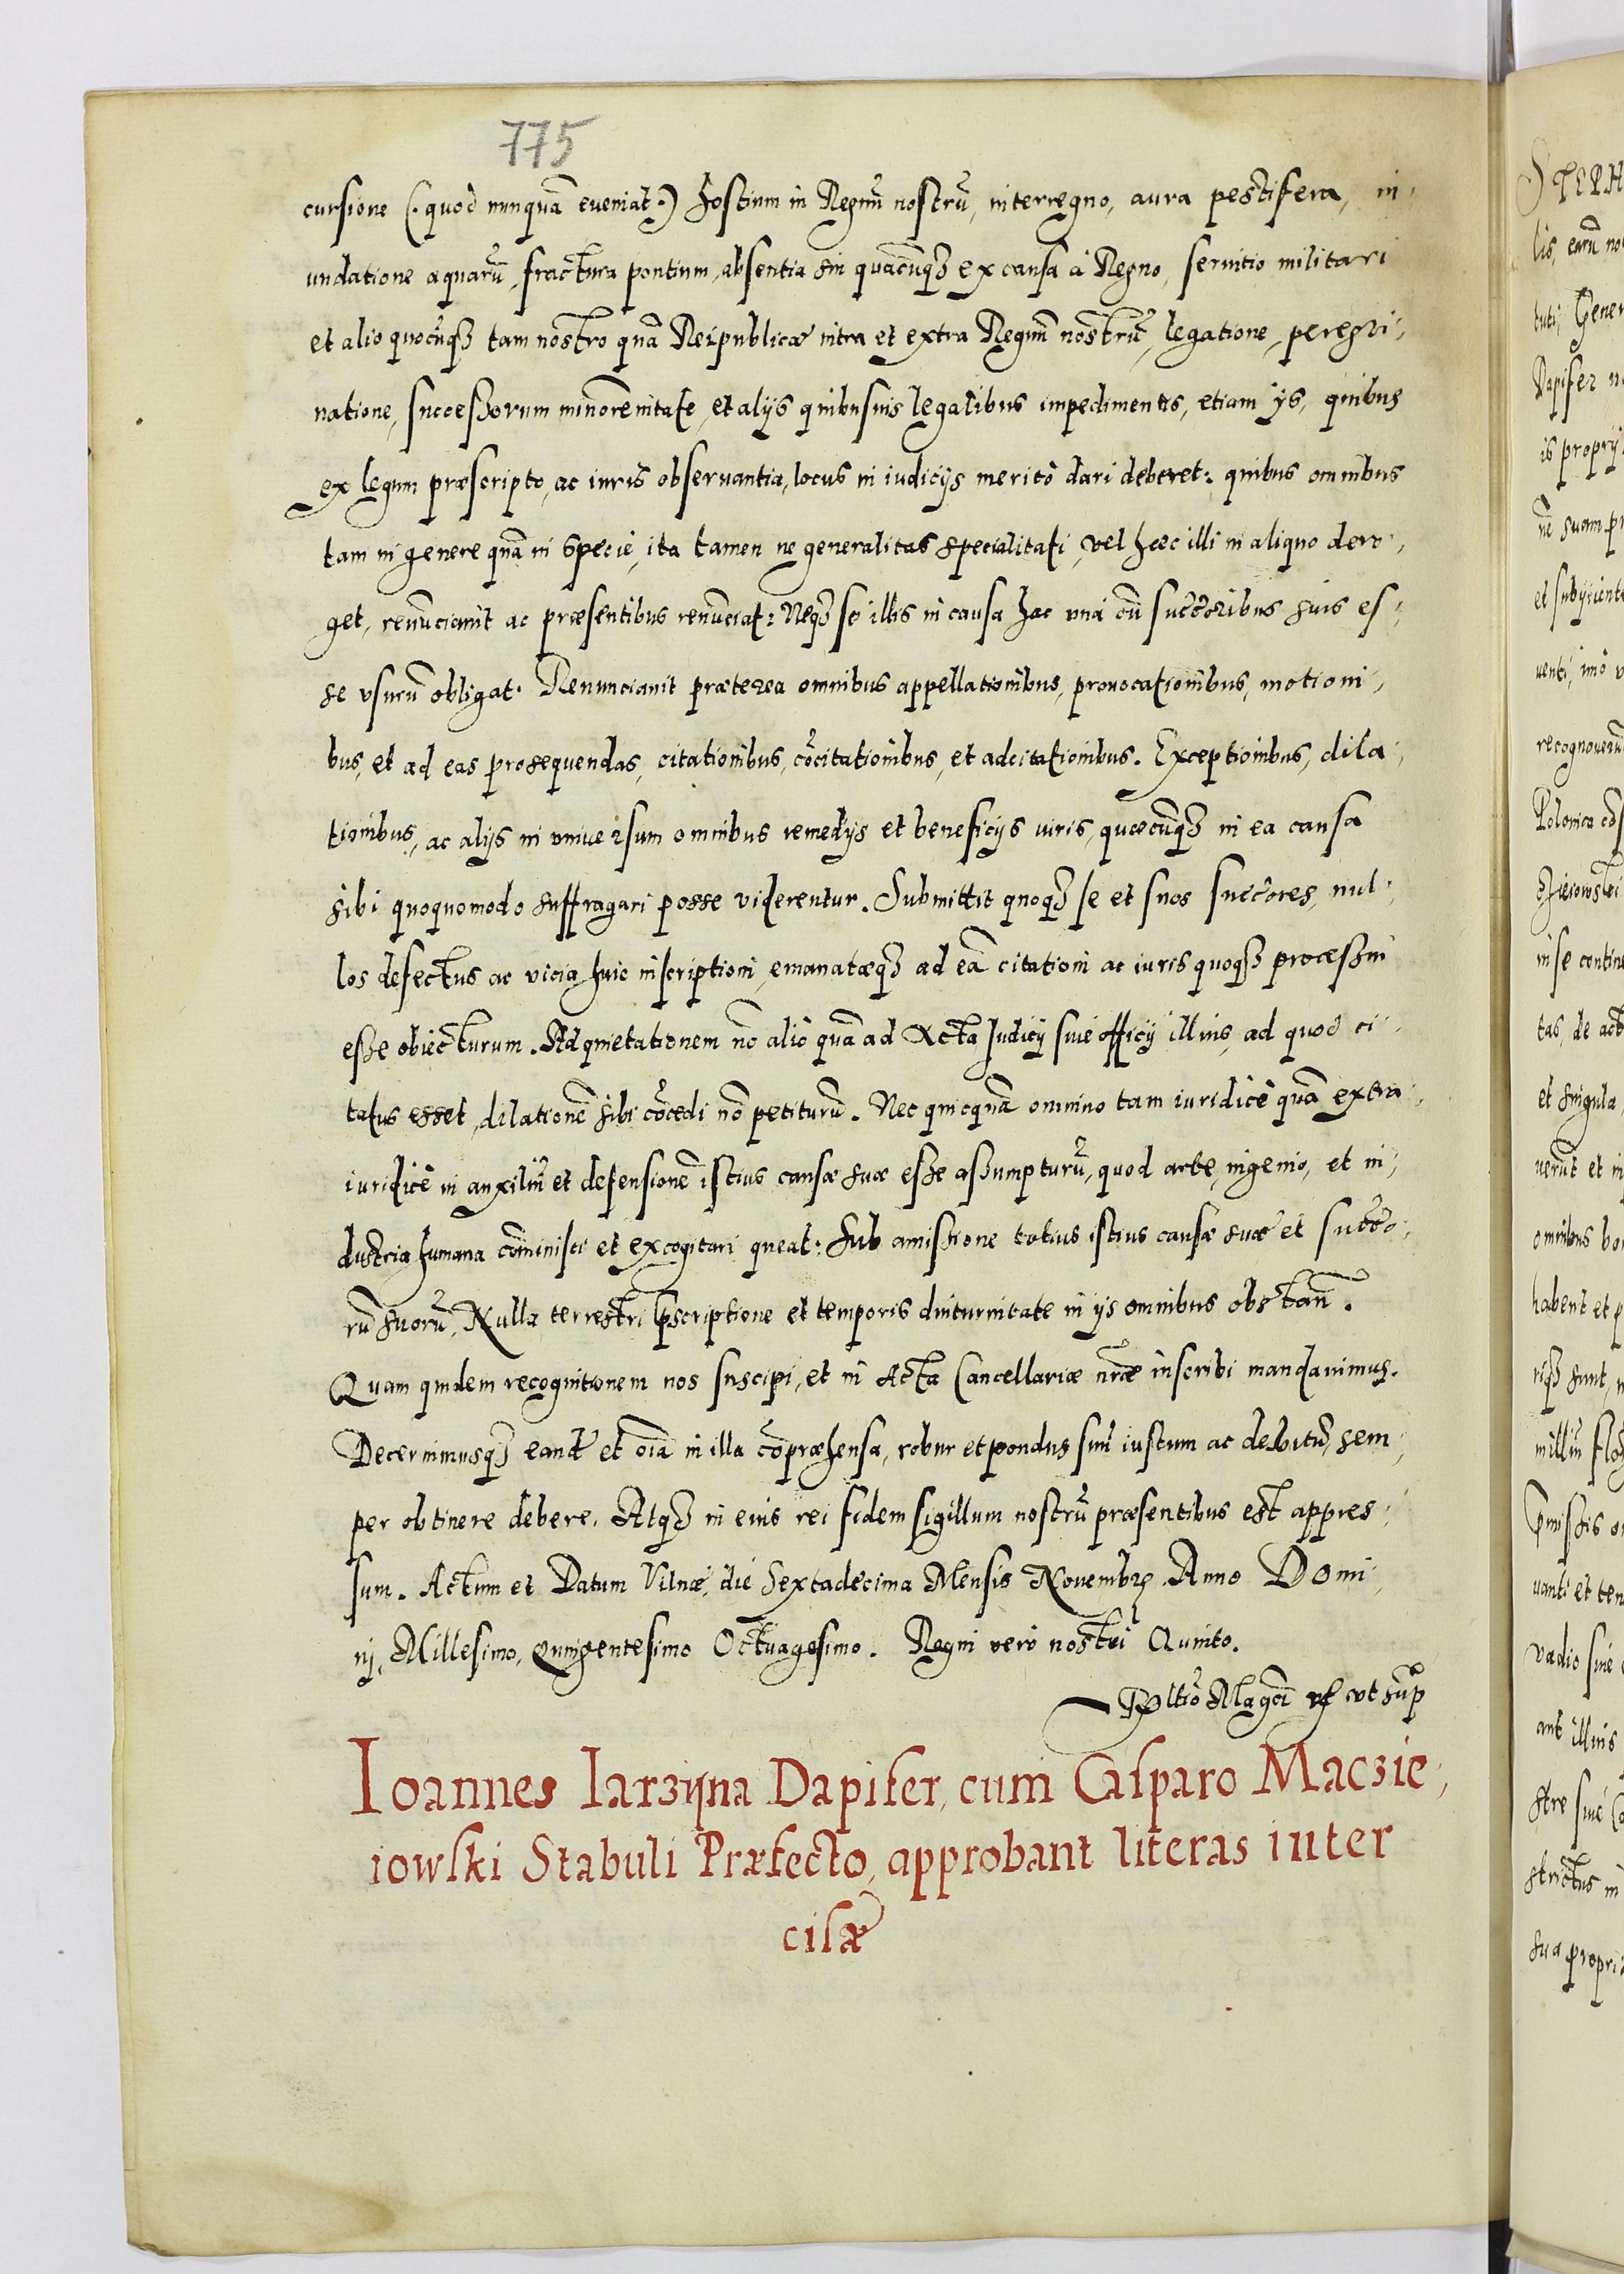 775
cursione (: quod nunquā eueniat :) hostium in Regnū nostrū, interregno, aura pestifera, in-
undatione aquarū, fractura pontium, absentia sui quacūqʒ ex causa à Regno, seruitio militari
et alio quocūqʒ tam nostro quā Reipublicæ intra et extra Regnū nostrū, legatione, peregri-
natione, successorum minorennitate, et alijs quibusuis legalibus impedimentis, etiam ijs, quibus
ex legum præscripto, ac iuris obseruantia, locus in iudicijs meritò dari deberet: quibus omnibus
tam in genere quā in specie, ita tamen ne generalitas specialitati, vel hæc illi in aliquo dero-
get, renūciauit ac præsentibus renūciat: Neqʒ se illis in causa hac vnà cū succōribus suis es-
se vsurū obligat. Renunciauit præterea omnibus appellationibus, prouocationibus, motioni-
bus, et ad eas prosequendas, citationibus, cōcitationibus, et adcitationibus. Exceptionibus, dila-
tionibus, ac alijs in vniuersum omnibus remedijs et beneficijs iuris, quæcūqʒ in ea causa
sibi quoquomodo suffragari posse viderentur. Submittit quoqʒ se et suos succōres, nul-
los defectus ac vicia huic inscriptioni, emanatæqʒ ad eā citationi ac iuris quoqʒ processui
esse obiecturum. Ad quietationem nō aliò quā ad Acta Iudicij siue officij illius, ad quod ci-
tatus esset, dilationē sibi cōcedi nō petiturū. Nec quicquā omnino tam iuridicè quā extra
iuridicè in auxiliū et defensionē istius causæ suæ esse assumpturū, quod arte, ingenio, et in-
dustria humana cōminisci et excogitari queat: sub amissione totius istius causæ suæ et succo-
rū suorū. Nulla terrestri p̄scriptione et temporis diuturnitate in ijs omnibus obstan̄.
Quam quidem recognitionem nos suscipi, et in Acta Cancellariæ nr̄æ inscribi mandauimus.
Decernimusqʒ eandē et oīa in illa cōpræhensa, robur et pondus suū iustum ac debitū, sem-
per obtinere debere. Atqʒ in eius rei fidem sigillum nostrū præsentibus est appres-
sum. Actum et Datum Vilnæ, die Sextadecima Mensis Nouembrꝭ. Anno Domi-
nj, Millesimo, Quingentesimo Octuagesimo. Regni verò nostri Quinto.
Rltiō Magci vt sup̄
Ioannes Iarzyna Dapifer, cum Casparo Maczie-
iowski Stabuli Præfecto, approbant literas inter
cisæ
STEPH
lis, earū no
tuti, Gener
Dapifer n
is proprij
nē suam p
et subijcient
uenti, imò v
recognouerū
in se contin
tas, de act
et singula
uerūt et in
omnibus bo
habent et p
riqʒ sunt,
p̄missis o
uanti et ten
vadio siue
aut illius
stre siue
strictus in
sua propri